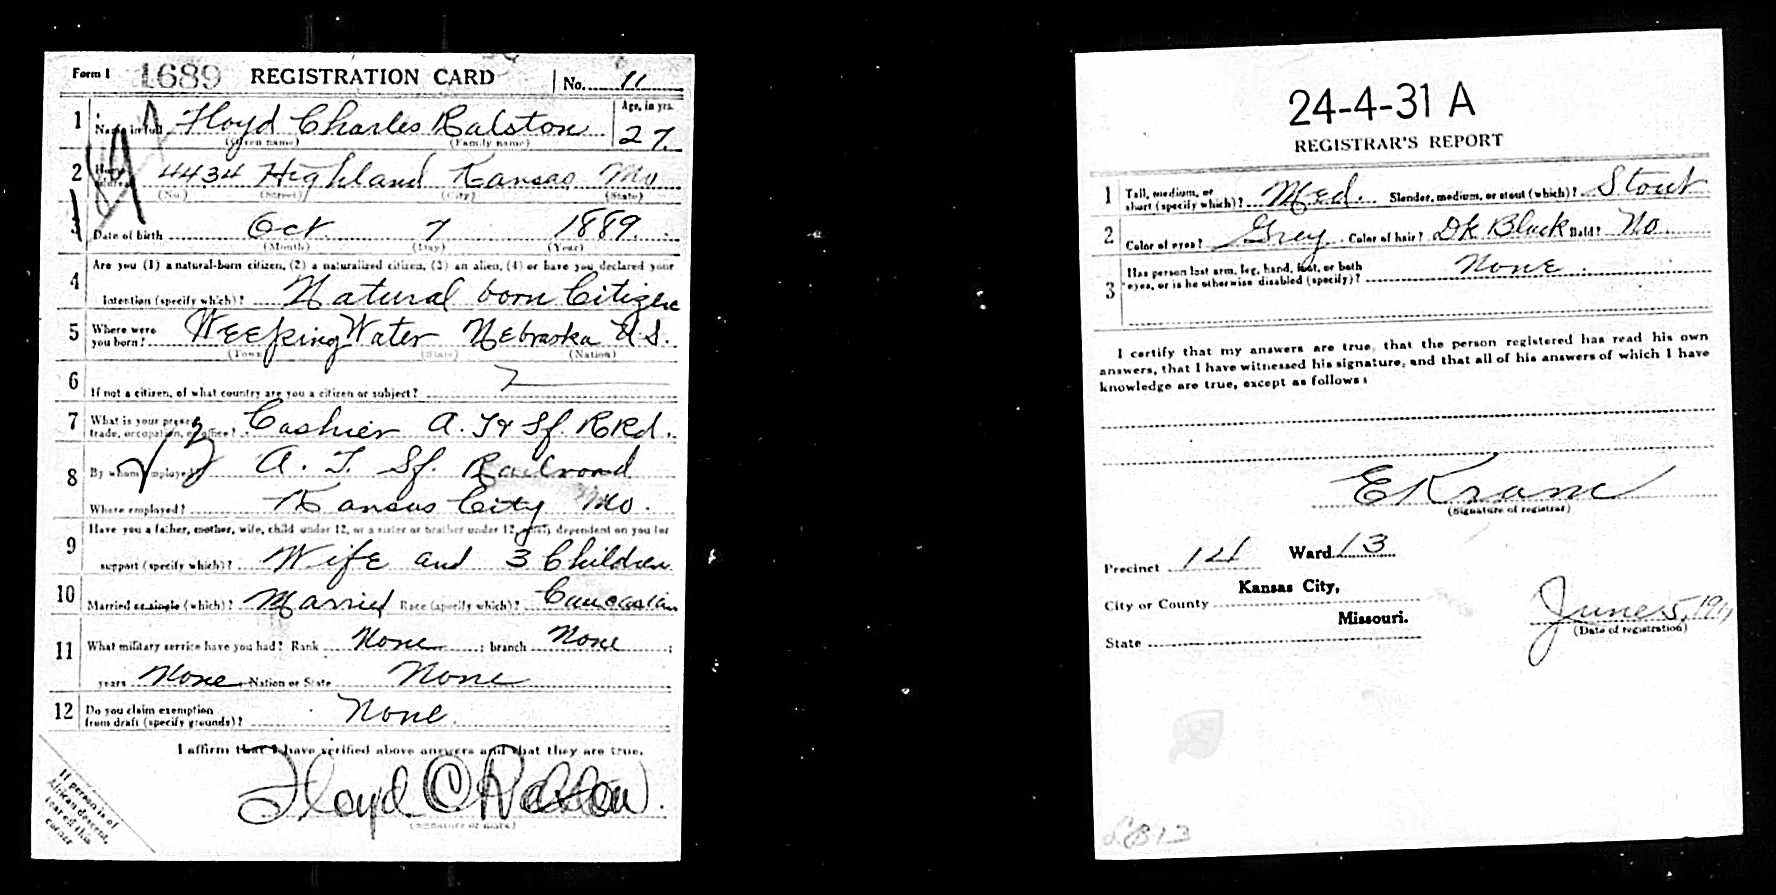 Form 1 1689 REGISTRATION CARD No. 11
1 Name in full Floyd Charles Ralston Age, in yrs. 27
(Given name) (Family name)
2 Home address 4434 Highland Kansas Mo
(No.) (Street) (City) (State)
3 Date of birth Oct. 7 1889
(Month) (Day) (Year)
4 Are you (1) a natural-born citizen, (2) a naturalized citizen, (3) an alien, (4) or have you declared your
intention (specify which)? Natural born Citizen
5 Where were you born? Weeping Water Nebraska U.S.
(Town) (State) (Nation)
6 If not a citizen, of what country are you a citizen or subject?
7 What is your present trade, occupation, or office? Cashier A. T & Sf. RRd.
8 By whom employed? A. T. Sf. Railroad
Where employed? Kansas City Mo.
9 Have you a father, mother, wife, child under 12, or a sister or brother under 12, solely dependent on you for
support (specify which)? Wife and 3 Children
10 Married or single (which)? Married Race (specify which)? Caucasian
11 What military service have you had? Rank None ; branch None ;
years None ; Nation or State None
12 Do you claim exemption from draft (specify grounds)? None.
I affirm that I have verified above answers and that they are true.
Floyd C Ralston.
(Signature or mark)
If person is of
African descent,
tear off this
corner
24-4-31 A
REGISTRAR'S REPORT
1 Tall, medium, or short (specify which)? Med. Slender, medium, or stout (which)? Stout
2 Color of eyes? Grey Color of hair? Dk Black Bald? No
3 Has person lost arm, leg, hand, foot, or both
eyes, or is he otherwise disabled (specify)? None.
I certify that my answers are true, that the person registered has read his own
answers, that I have witnessed his signature, and that all of his answers of which I have
knowledge are true, except as follows:
(Signature of registrar)
Precinct 14 Ward 13
City or County Kansas City,
State Missouri.
June 5, 1917
(Date of registration)